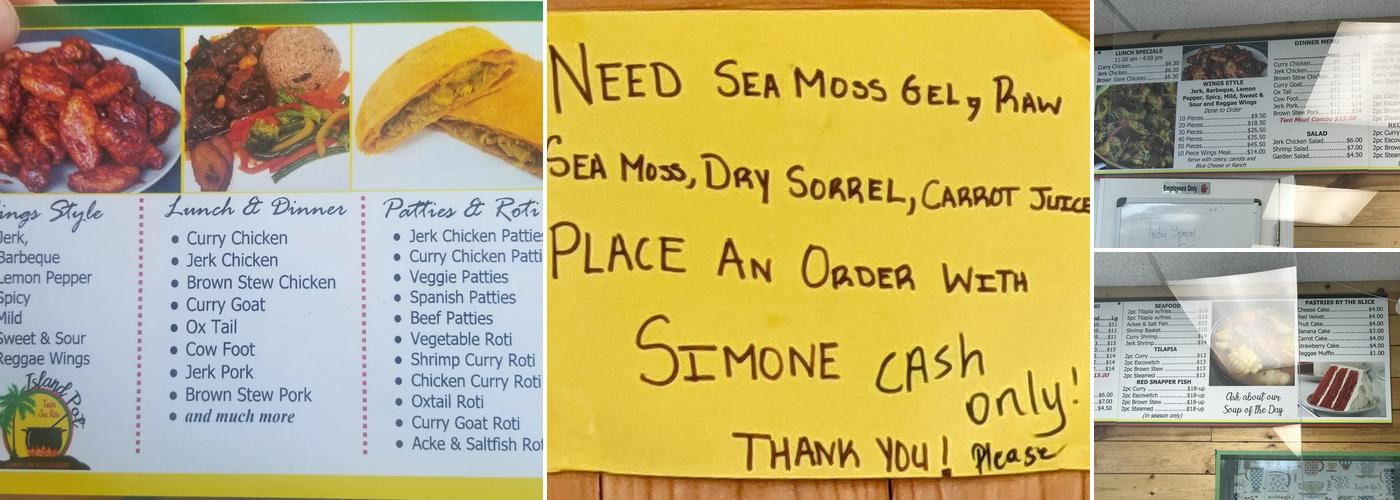 ings Style
Jerk,
Barbeque
Lemon Pepper
Spicy
Mild
Sweet & Sour
Reggae Wings
Island Pot
Lunch & Dinner
• Curry Chicken
• Jerk Chicken
• Brown Stew Chicken
• Curry Goat
• Ox Tail
• Cow Foot
• Jerk Pork
• Brown Stew Pork
• and much more
Patties & Roti
• Jerk Chicken Patties
• Curry Chicken Patti
• Veggie Patties
• Spanish Patties
• Beef Patties
• Vegetable Roti
• Shrimp Curry Roti
• Chicken Curry Roti
• Oxtail Roti
• Curry Goat Roti
• Acke & Saltfish Rot
NEED SEA MOSS GEL, RAW
SEA MOSS, DRY SORREL, CARROT JUICE
PLACE AN ORDER WITH
SIMONE CASH
only!
THANK YOU! Please
LUNCH SPECIALS
11:00 am - 4:00 pm
Curry Chicken $6.30
Jerk Chicken $6.30
Brown Stew Chicken $6.30
WINGS STYLE
Jerk, Barbeque, Lemon
Pepper, Spicy, Mild, Sweet &
Sour and Reggae Wings
Done to Order
10 Pieces $9.50
20 Pieces $18.50
30 Pieces $26.50
40 Pieces $35.50
50 Pieces $45.50
10 Piece Wings Meal $14.00
Serve with celery, carrots and
Blue Cheese or Ranch
DINNER MENU
Curry Chicken
Jerk Chicken
Brown Stew
Curry Goat
Ox Tail
Cow Foot
Jerk Pork
Brown Stew Pork $12 $14
Two Meat Combo $15.00
SALAD
Jerk Chicken Salad $6.00
Shrimp Salad $7.00
Garden Salad $4.50
Employees Only
Today Special
SEAFOOD
2pc Tilapia w/fries
6pc Tilapia w/fries
Ackee & Salt Fish
Shrimp Basket
Curry Shrimp
Jerk Shrimp
TILAPIA
2pc Curry $13
2pc Escoveitch $13
2pc Brown Stew $13
2pc Steamed $13
RED SNAPPER FISH
2pc Curry $18-up
2pc Escoveitch $18-up
2pc Brown Stew $18-up
2pc Steamed $18-up
(in season only)
Ask about our
Soup of the Day
PASTRIES BY THE SLICE
Cheese Cake $4.00
Red Velvet $4.00
Fruit Cake $4.00
Banana Cake $3.00
Carrot Cake $4.00
Strawberry Cake $4.00
Reggae Muffin $1.00